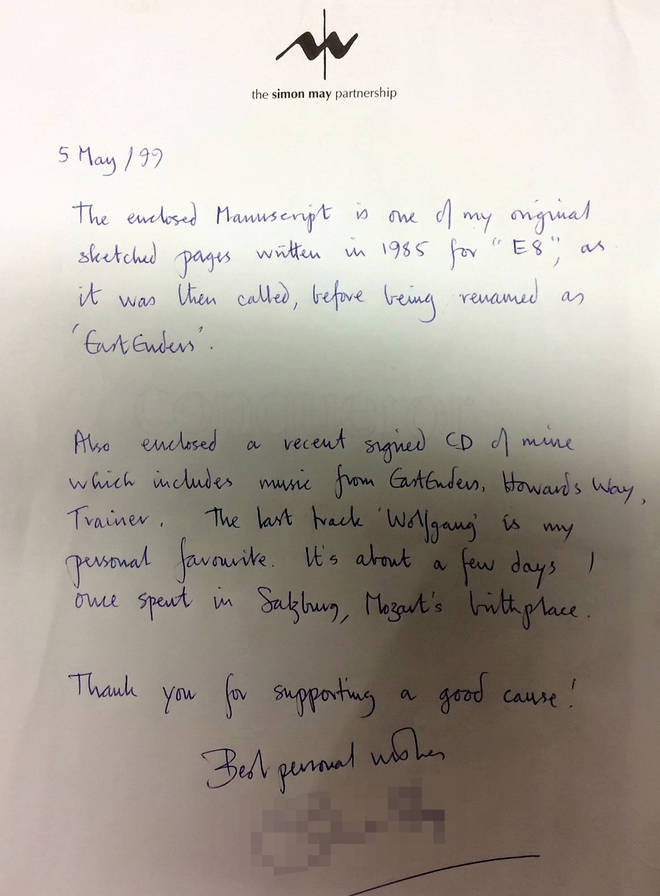 the simon may partnership
5 May / 99
The enclosed Manuscript is one of my original
sketched pages written in 1985 for "E8", as
it was then called, before being renamed as
'EastEnders'.
Also enclosed a recent signed CD of mine
which includes music from EastEnders, Howards Way,
Trainer. The last track 'Wolfgang' is my
personal favourite. It's about a few days I
once spent in Salzburg, Mozart's birthplace.
Thank you for supporting a good cause!
Best personal wishes